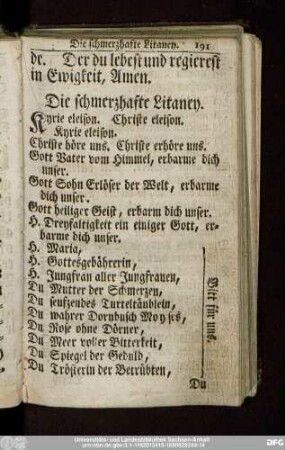 Die schmerzhafte Litaney. 191
de. Der du lebest und regierest
in Ewigkeit, Amen.
Die schmerzhafte Litaney.
Kyrie eleison. Christe eleison.
Kyrie eleison.
Christe höre uns. Christe erhöre uns.
Gott Vater vom Himmel, erbarme dich
unser.
Gott Sohn Erlöser der Welt, erbarme
dich unser.
Gott heiliger Geist, erbarm dich unser.
H. Dreyfaltigkeit ein einiger Gott, er-
barme dich unser.
H. Maria,
H. Gottesgebährerin,
H. Jungfrau aller Jungfrauen,
Du Mutter der Schmerzen,
Du seufzendes Turteltäublein,
Du wahrer Dornbusch Moysis,
Du Rose ohne Dörner,
Du Meer voller Bitterkeit,
Du Spiegel der Geduld,
Du Trösterin der Betrübten,
Bitt für uns.
Du
Universitäts- und Landesbibliothek Sachsen-Anhalt
DFG